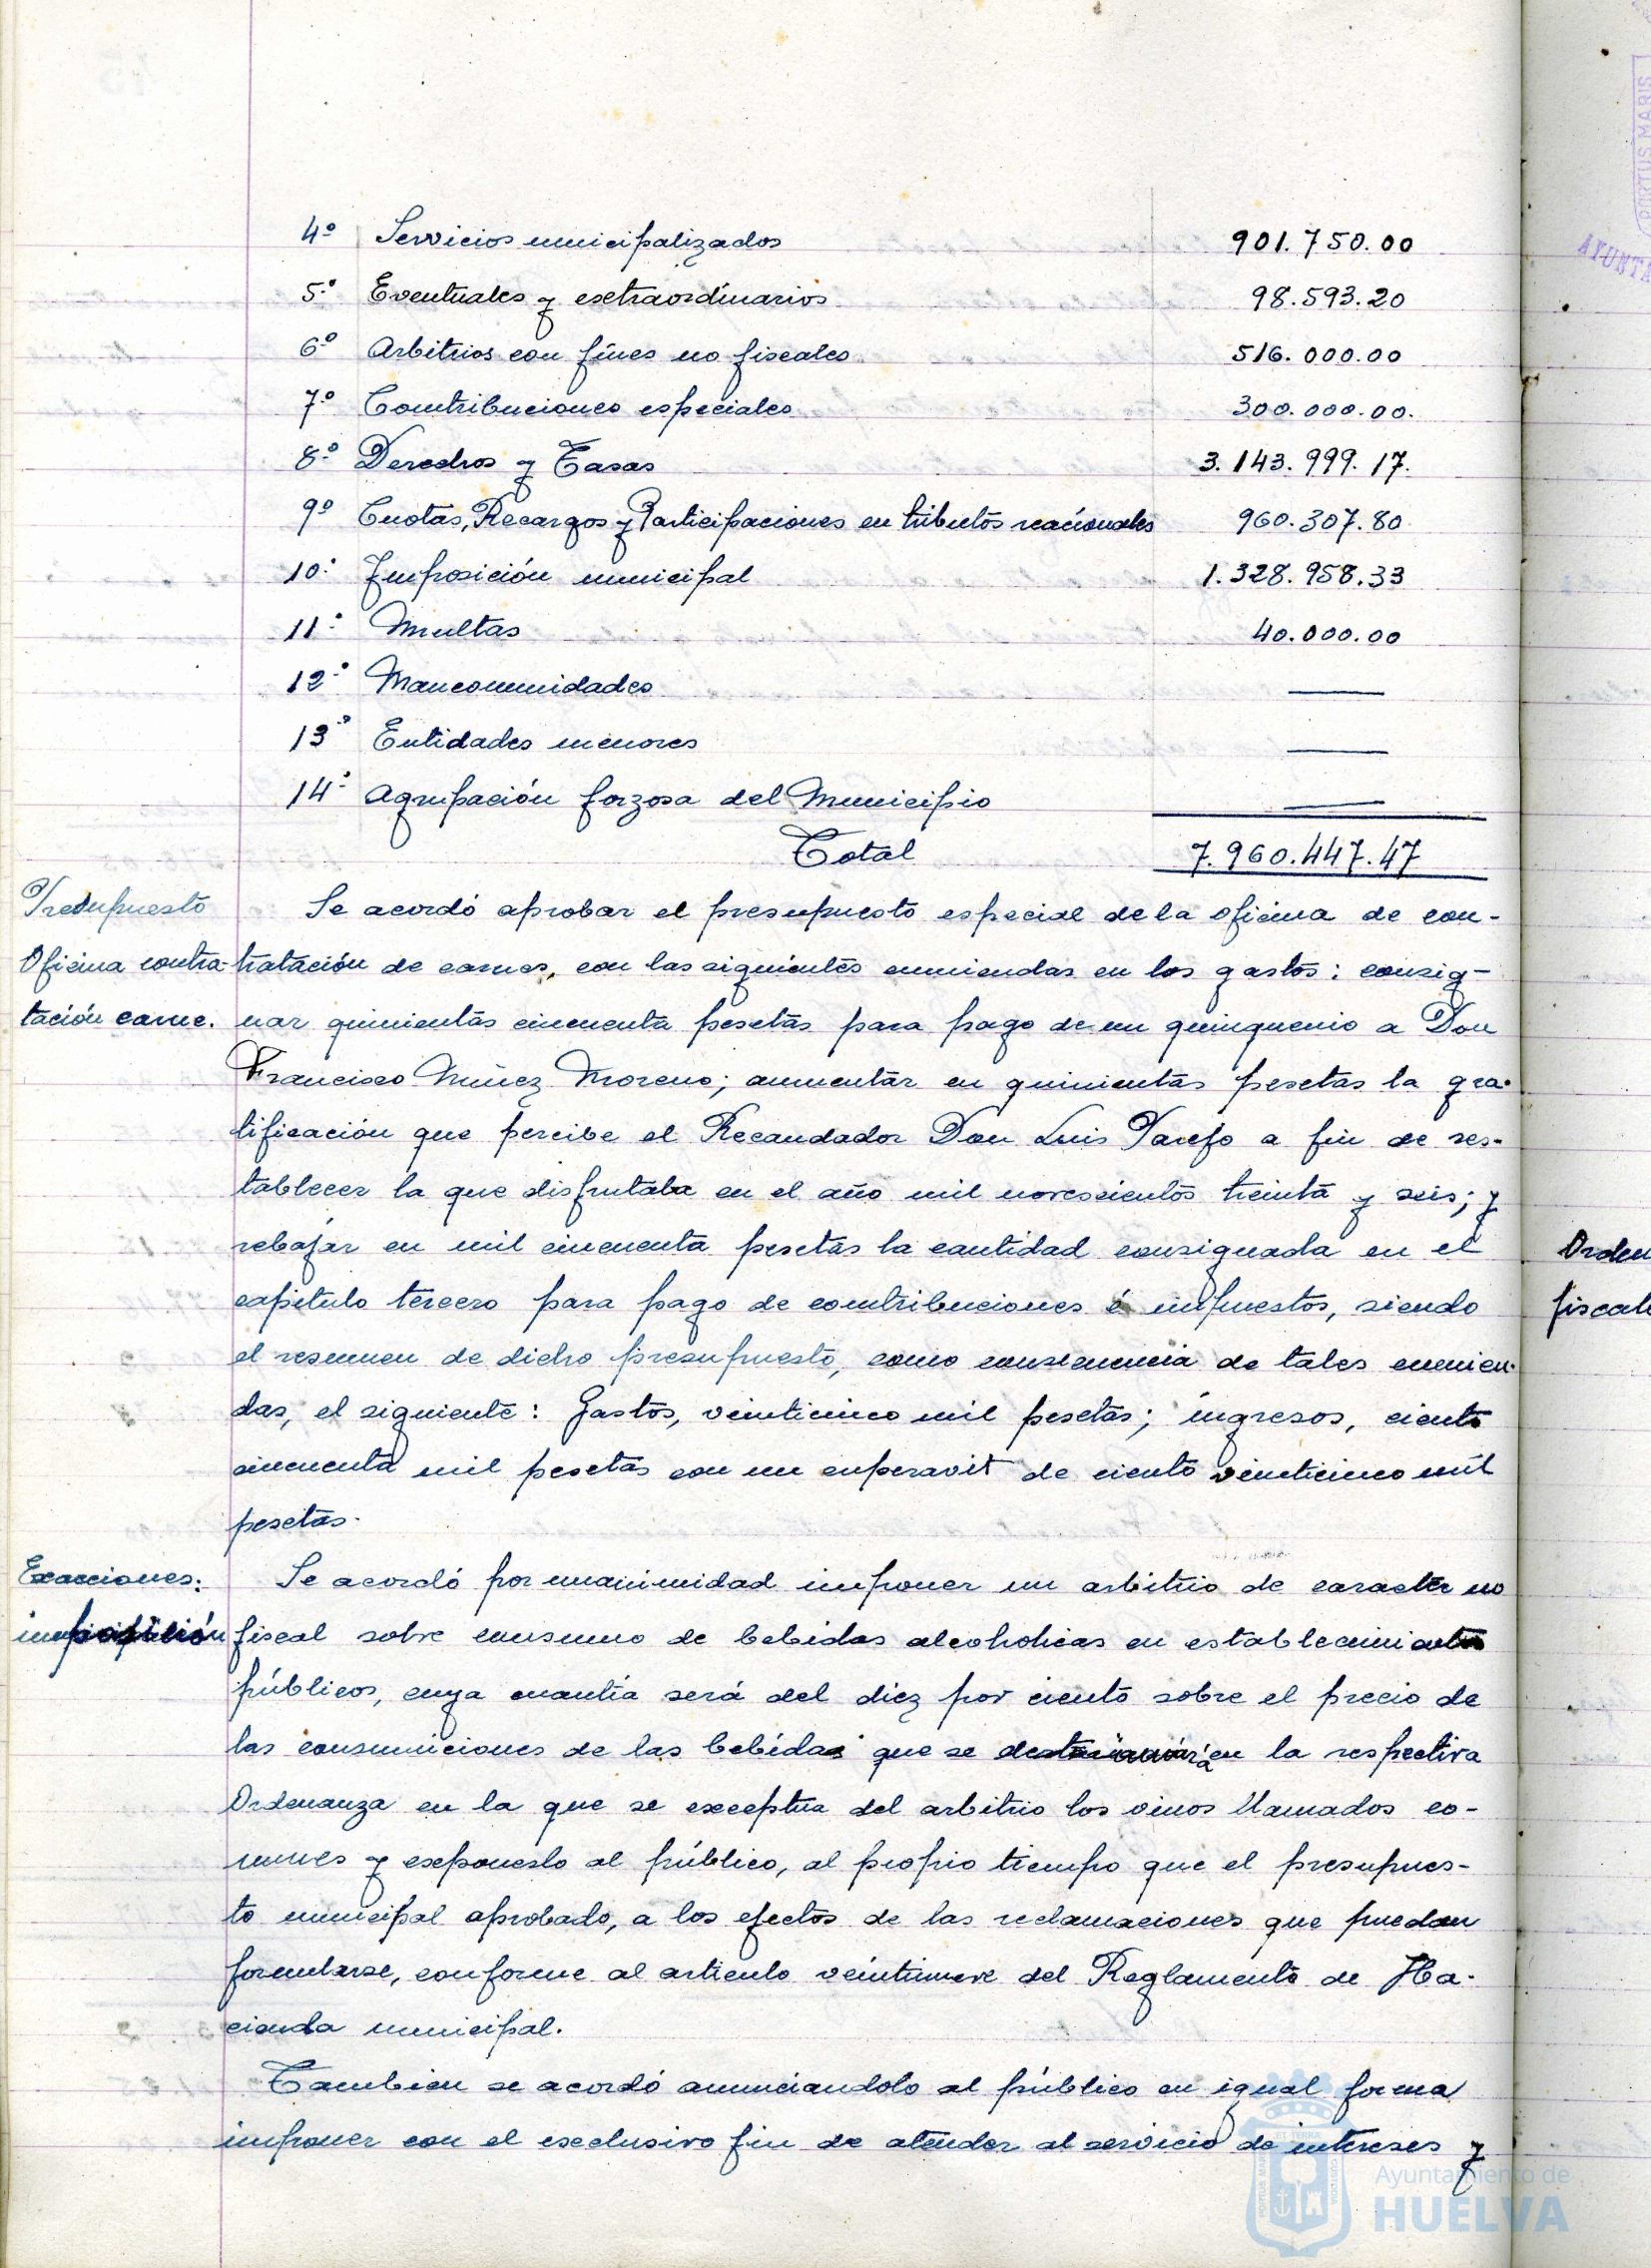 4º Servicios municipalizados 901.750.00
5º Eventuales y extraordinarios 98.593.20
6º Arbitrios con fines no fiscales 516.000.00
7º Contribuciones especiales 300.000.00.
8º Derechos y Tasas 3.143.999.17.
9º Cuotas, Recargos y Participaciones en tributos nacionales 960.307.80
10º Imposición municipal 1.328.958.33
11º Multas 40.000.00
12º Mancomunidades ——
13º Entidades menores ——
14º Agrupación forzosa del Municipio ——
Total 7.960.447.47
Presupuesto
Oficina contra-
tación carne.
Se acordó aprobar el presupuesto especial de la oficina de con-
tratación de carnes, con las siguientes enmiendas en los gastos: consig-
nar quinientas cincuenta pesetas para pago de un quinquenio a Don
Francisco Núñez Moreno; aumentar en quinientas pesetas la gra-
tificación que percibe el Recaudador Don Luis Parejo a fin de res-
tablecer la que disfrutaba en el año mil novescientos treinta y seis; y
rebajar en mil cincuenta pesetas la cantidad consignada en el
capitulo tercero para pago de contribuciones é impuestos, siendo
el resumen de dicho presupuesto, como consecuencia de tales enmien-
das, el siguiente: Gastos, veinticinco mil pesetas; ingresos, ciento
cincuenta mil pesetas con un superavit de ciento veinticinco mil
pesetas.
Exacciones:
imposición
Se acordó por unanimidad imponer un arbitrio de caracter no
fiscal sobre consumo de bebidas alcoholicas en establecimientos
públicos, cuya cuantía será del diez por ciento sobre el precio de
las consumiciones de las bebidas que se en la respectiva
Ordenanza en la que se exceptua del arbitrio los vinos llamados co-
munes y exponerlo al público, al propio tiempo que el presupues-
to municipal aprobado, a los efectos de las reclamaciones que puedan
formularse, conforme al articulo veintinueve del Reglamento de Ha-
cienda municipal.
Tambien se acordó anunciandolo al público en igual forma
imponer con el exclusivo fin de atender al servicio de intereses y
Orden
fiscale
PORTUS MARIS
AYUNTA
Ayuntamiento de
HUELVA